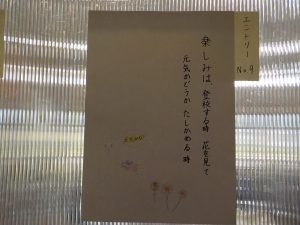 エントリー
No.9
楽しみは 登校する時 花を見て
元気かどうか たしかめる時